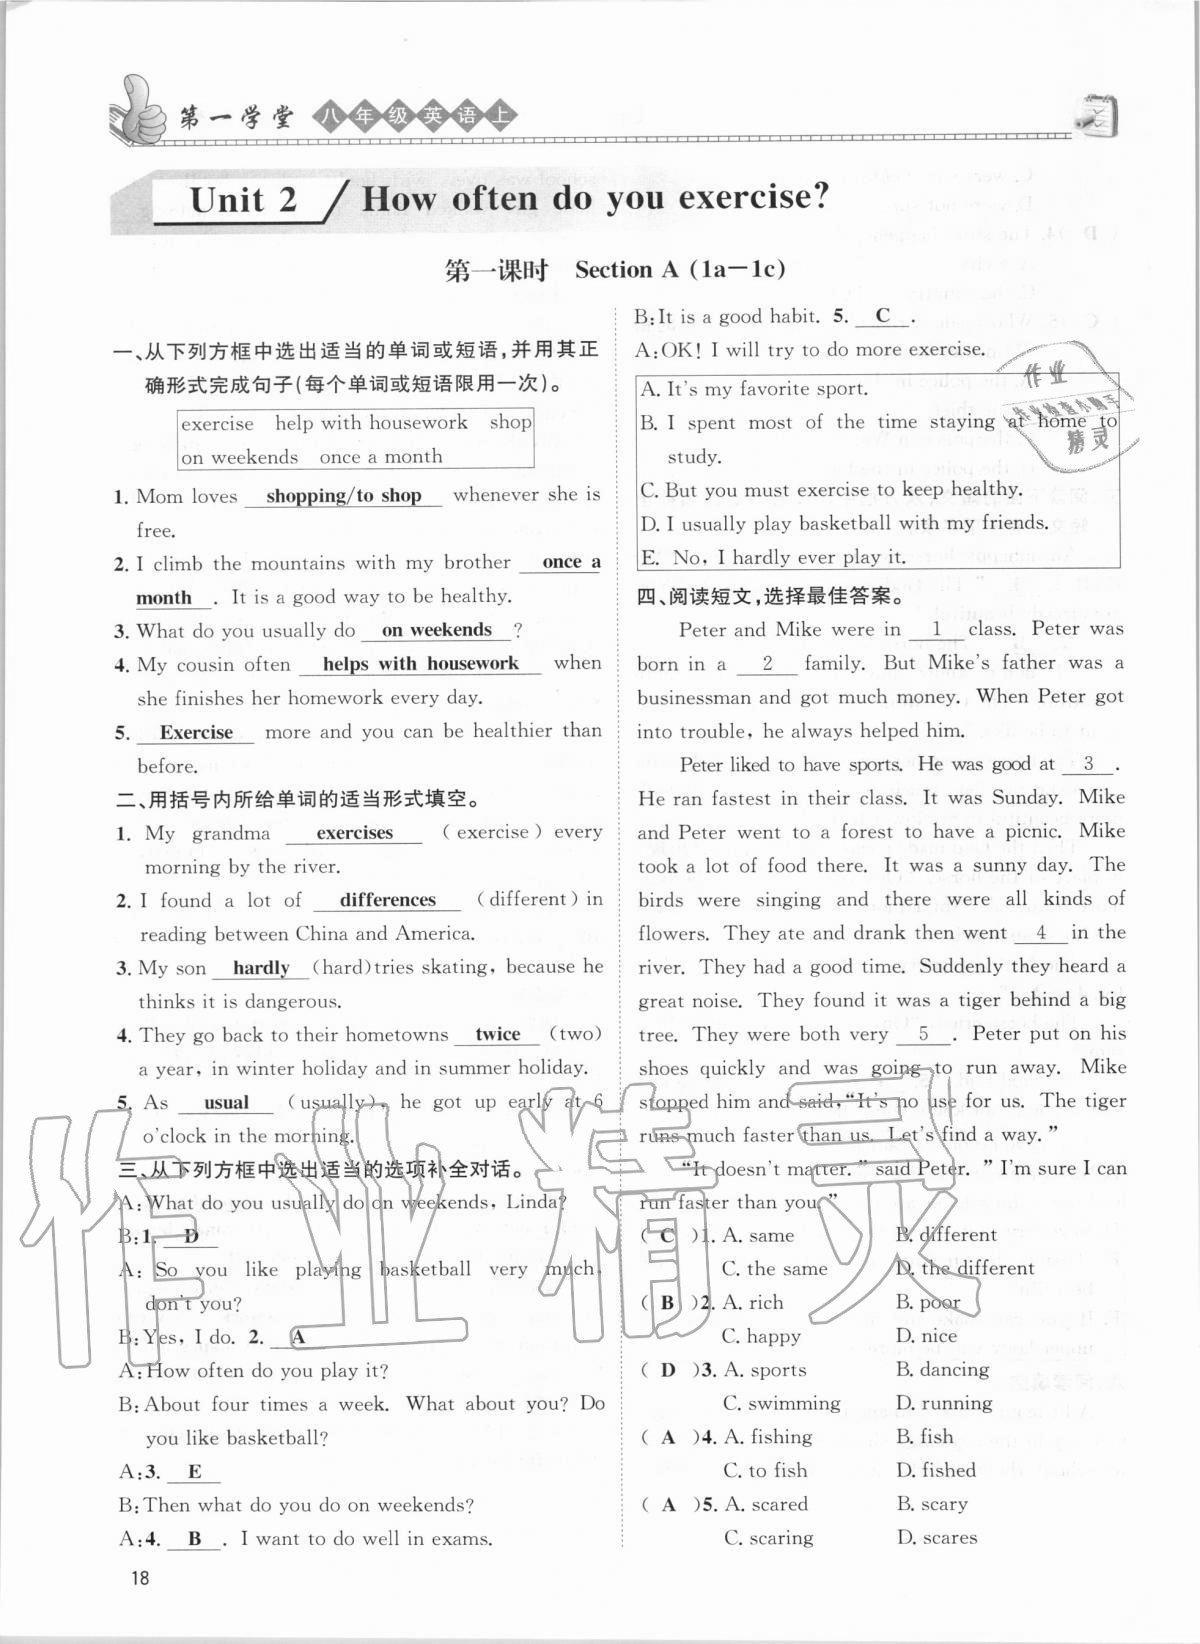 第一学堂 八年级英语上
Unit 2 / How often do you exercise?
第一课时 Section A (1a—1c)
一、从下列方框中选出适当的单词或短语,并用其正
确形式完成句子(每个单词或短语限用一次)。
exercise help with housework shop
on weekends once a month
1. Mom loves shopping/to shop whenever she is
free.
2. I climb the mountains with my brother once a
month . It is a good way to be healthy.
3. What do you usually do on weekends ?
4. My cousin often helps with housework when
she finishes her homework every day.
5. Exercise more and you can be healthier than
before.
二、用括号内所给单词的适当形式填空。
1. My grandma exercises (exercise) every
morning by the river.
2. I found a lot of differences (different) in
reading between China and America.
3. My son hardly (hard)tries skating, because he
thinks it is dangerous.
4. They go back to their hometowns twice (two)
a year, in winter holiday and in summer holiday.
5. As usual (usually), he got up early at 6
o'clock in the morning.
三、从下列方框中选出适当的选项补全对话。
A:What do you usually do on weekends, Linda?
B:1. D
A: So you like playing basketball very much,
don't you?
B:Yes, I do. 2. A
A:How often do you play it?
B:About four times a week. What about you? Do
you like basketball?
A:3. E
B:Then what do you do on weekends?
A:4. B . I want to do well in exams.
18
B:It is a good habit. 5. C .
A:OK! I will try to do more exercise.
A. It's my favorite sport.
B. I spent most of the time staying at home to
study.
C. But you must exercise to keep healthy.
D. I usually play basketball with my friends.
E. No, I hardly ever play it.
四、阅读短文,选择最佳答案。
Peter and Mike were in 1 class. Peter was
born in a 2 family. But Mike's father was a
businessman and got much money. When Peter got
into trouble, he always helped him.
Peter liked to have sports. He was good at 3 .
He ran fastest in their class. It was Sunday. Mike
and Peter went to a forest to have a picnic. Mike
took a lot of food there. It was a sunny day. The
birds were singing and there were all kinds of
flowers. They ate and drank then went 4 in the
river. They had a good time. Suddenly they heard a
great noise. They found it was a tiger behind a big
tree. They were both very 5 . Peter put on his
shoes quickly and was going to run away. Mike
stopped him and said,"It's no use for us. The tiger
runs much faster than us. Let's find a way."
"It doesn't matter." said Peter. "I'm sure I can
run faster than you."
( C )1. A. same B. different
C. the same D. the different
( B )2. A. rich B. poor
C. happy D. nice
( D )3. A. sports B. dancing
C. swimming D. running
( A )4. A. fishing B. fish
C. to fish D. fished
( A )5. A. scared B. scary
C. scaring D. scares
作业
作业检查小帮手
精灵
作业精灵